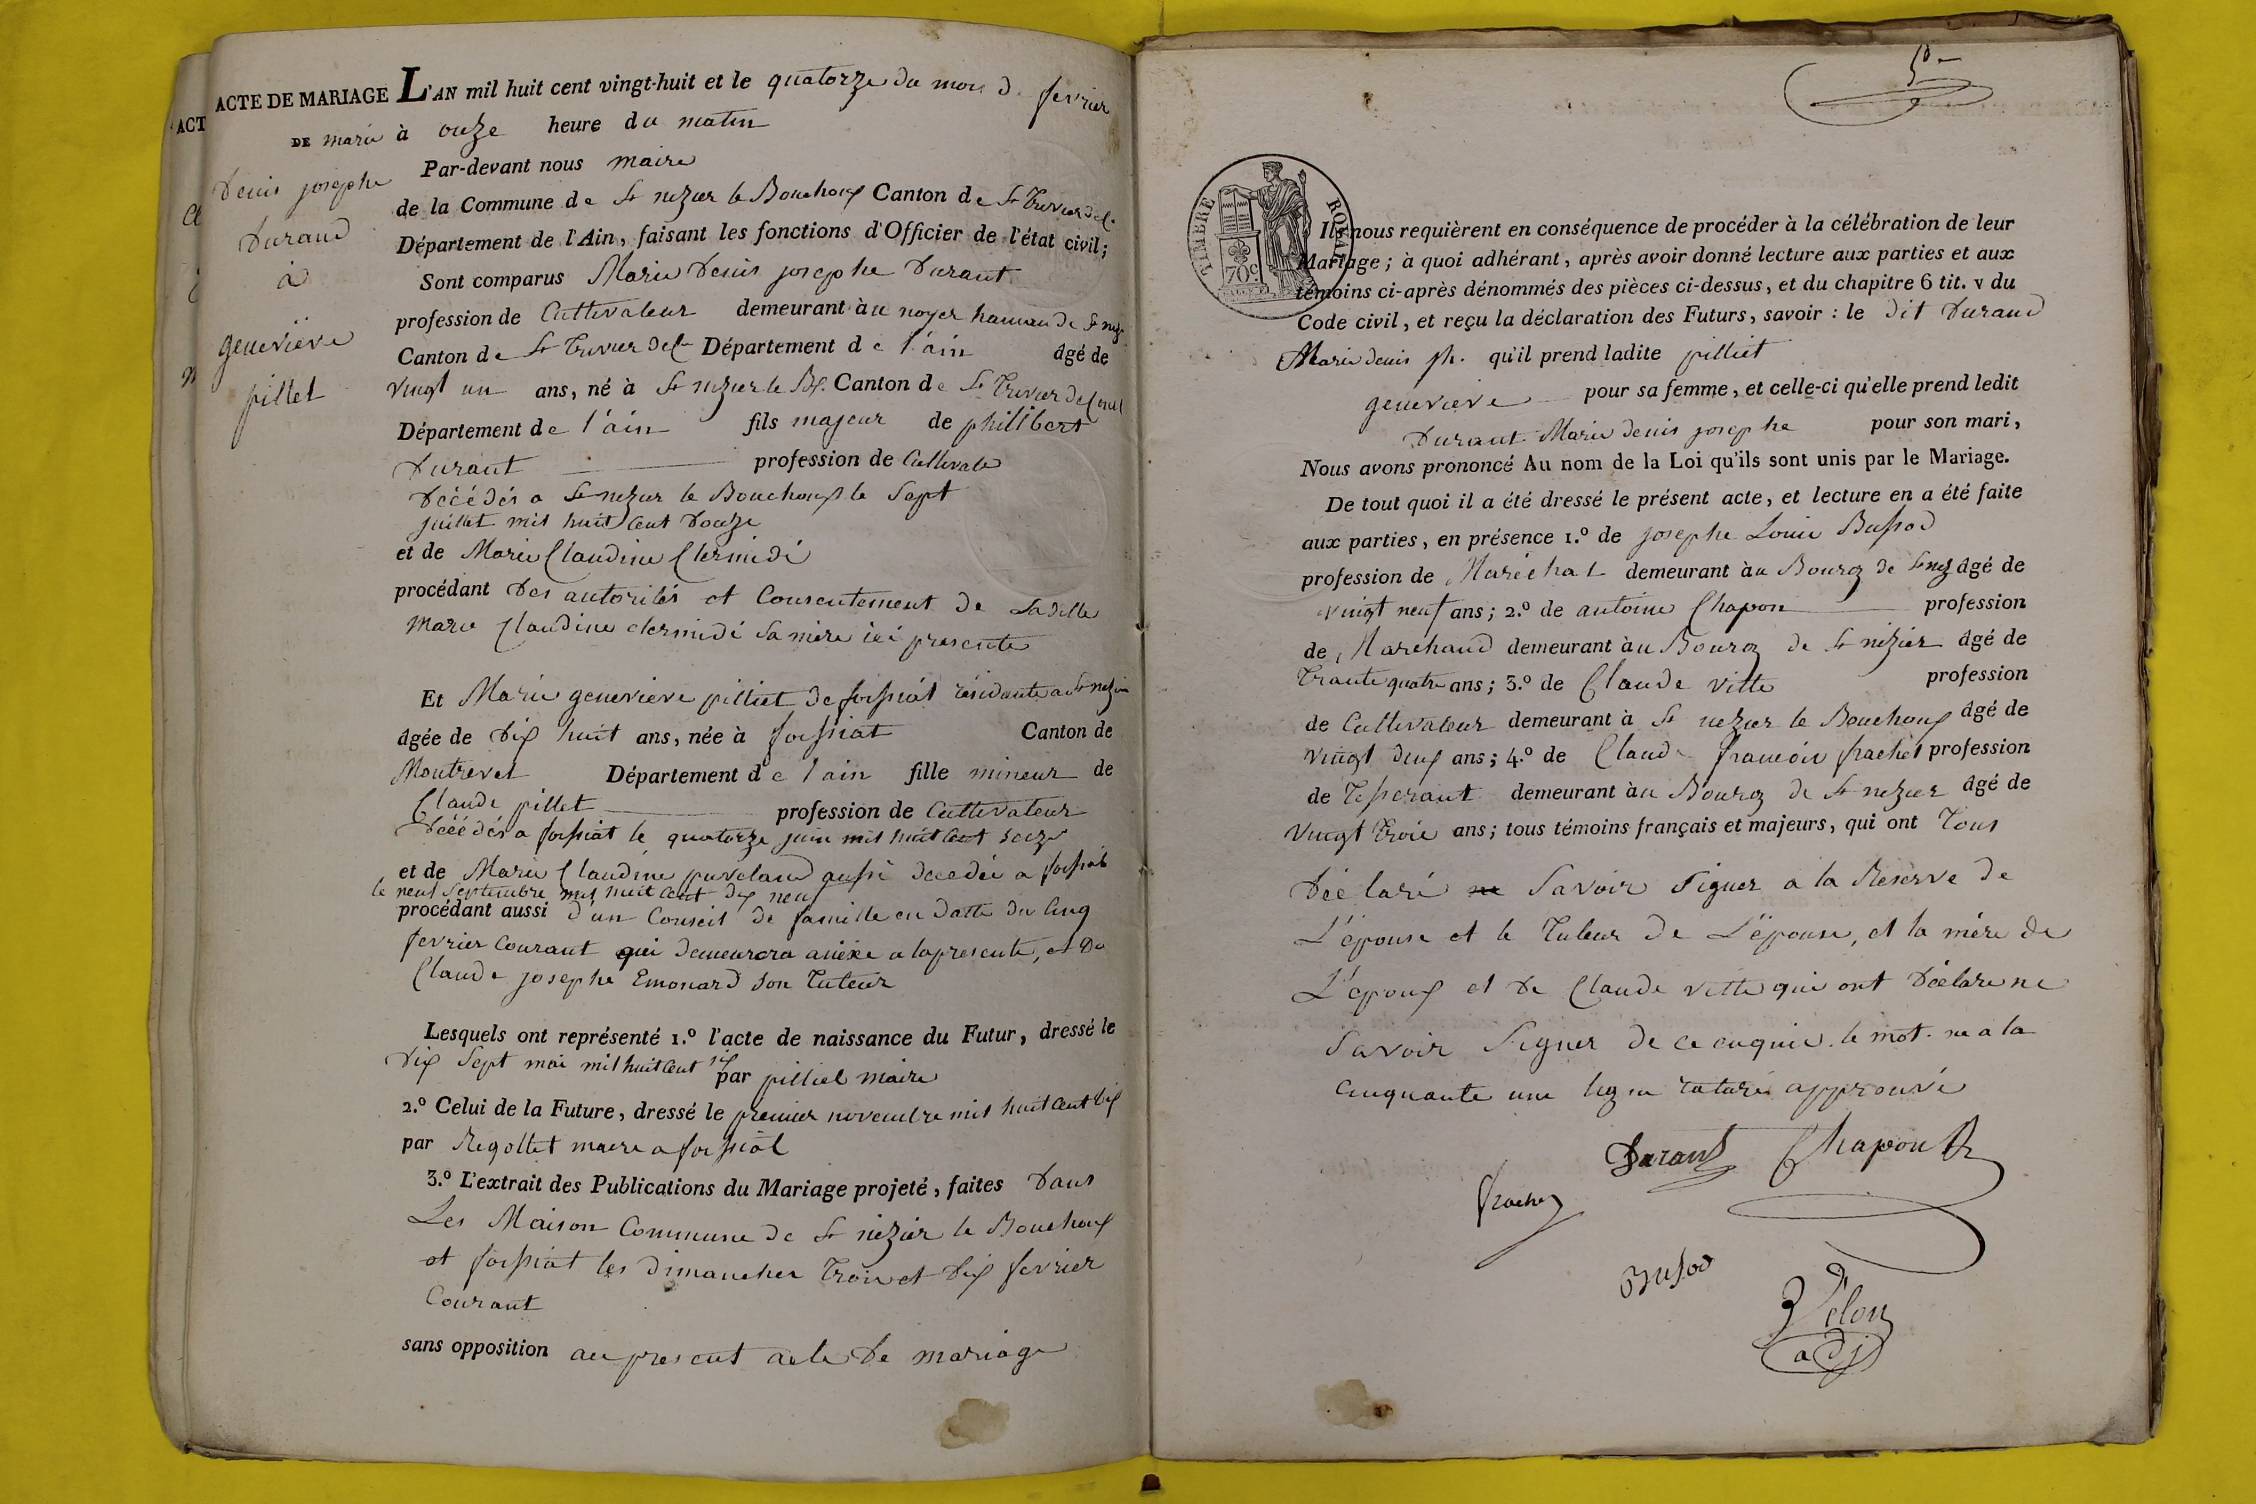 ACTE DE MARIAGE L'AN mil huit cent vingt-huit et le quatorze du mois de fevrier
DE marie à onze heure du matin
Denis josephe
Durand
à
geneviève
pillet
Par-devant nous maire
de la Commune de St nizier le Bouchoux Canton de St Trivier de C.
Département de l'Ain, faisant les fonctions d'Officier de l'état civil;
Sont comparus Marie Denis josephe Durant
profession de Cultivateur demeurant à au noyer hamau de St niz.
Canton de St Trivier de C. Département de l'ain âgé de
vingt un ans, né à St nizier le Bx. Canton de St Trivier de Court
Département de l'ain fils majeur de philibert
Durant profession de Cultivate
Décédés a St nizier le Bouchoux le Sept
juillet mil huit Cent Douze
et de Marie Claudine Clermidi
procédant Des autorités et Consentement de Ladille
Marie Claudine clermidi Sa mère ici presente
Et Marie genevieve pilliet de foissiat résidante a St nizier
âgée de Dix huit ans, née à foissiat Canton de
Montrevel Département de l'ain fille mineur de
Claude pillet profession de Cultivateur
Décédés a foissiat le quatorze juin mil huit Cent seize
et de Marie Claudine aussi decedée a foissiat
le neuf Septembre mil huit Cent dix neuf
procédant aussi d'un Conseil de famille en Datte du Cinq
fevrier Courant qui demeurera anéxé a la presente, et De
Claude josephe Emonard son Tuteur
Lesquels ont représenté 1.º l'acte de naissance du Futur, dressé le
Dix Sept mai mil huit Cent six par pilliet maire
2.º Celui de la Future, dressé le premier novembre mil huit Cent Dix
par Rigollet maire a foissiat
3.º L'extrait des Publications du Mariage projeté, faites Dans
Les Maison Commune de St nizier le Bouchoux
et foissiat les Dimanches Trois et Dix fevrier
Courant
sans opposition au present acte De mariage
TIMBRE ROYAL
70 c
Il nous requièrent en conséquence de procéder à la célébration de leur
Mariage; à quoi adhérant, après avoir donné lecture aux parties et aux
témoins ci-après dénommés des pièces ci-dessus, et du chapitre 6 tit. v du
Code civil, et reçu la déclaration des Futurs, savoir : le dit Durand
Marie denis jh. qu'il prend ladite pilliet
genevieve pour sa femme, et celle-ci qu'elle prend ledit
Durant Marie denis josephe pour son mari,
Nous avons prononcé Au nom de la Loi qu'ils sont unis par le Mariage.
De tout quoi il a été dressé le présent acte, et lecture en a été faite
aux parties, en présence 1.º de josephe Louis Bussod
profession de Maréchal demeurant à au Bourg de St niz âgé de
vingt neuf ans; 2.º de antoine Chapon profession
de Marchand demeurant à au Bourg de St nizier âgé de
Trante quatre ans; 3.º de Claude vitte profession
de Cultivateur demeurant à St nizier le Bouchoux âgé de
vingt Deux ans; 4.º de Claude francois frachet profession
de Tisserant demeurant à au Bourg de St nizier âgé de
vingt Trois ans; tous témoins français et majeurs, qui ont Tous
Déclaré ne Savoir Signer a la Réserve de
L'épouse et le Tuteur de L'épouse, et la mère de
L'epoux et De Claude vitte qui ont Déclare ne
Savoir Signer de ce enquis. le mot. ne a la
Cinquante une lign raturé approuvé
Durant Chapon
frachet
Bussod
Velon
adj